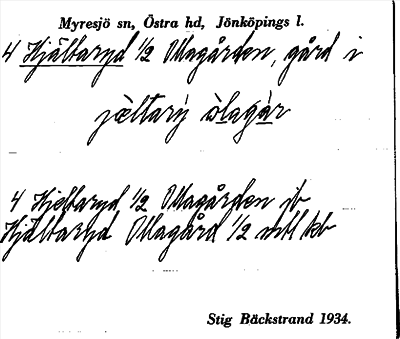 Myresjö sn, Östra hd, Jönköpings l.
4 Hjältaryd 1/2 Ollagården, gård i
jæ̀ltarý ò̀lagàr
4 Hjeltaryd 1/2 Ollagården jb
Hjältaryd Ollagård 1/2 mtl kb
Stig Bäckstrand 1934.